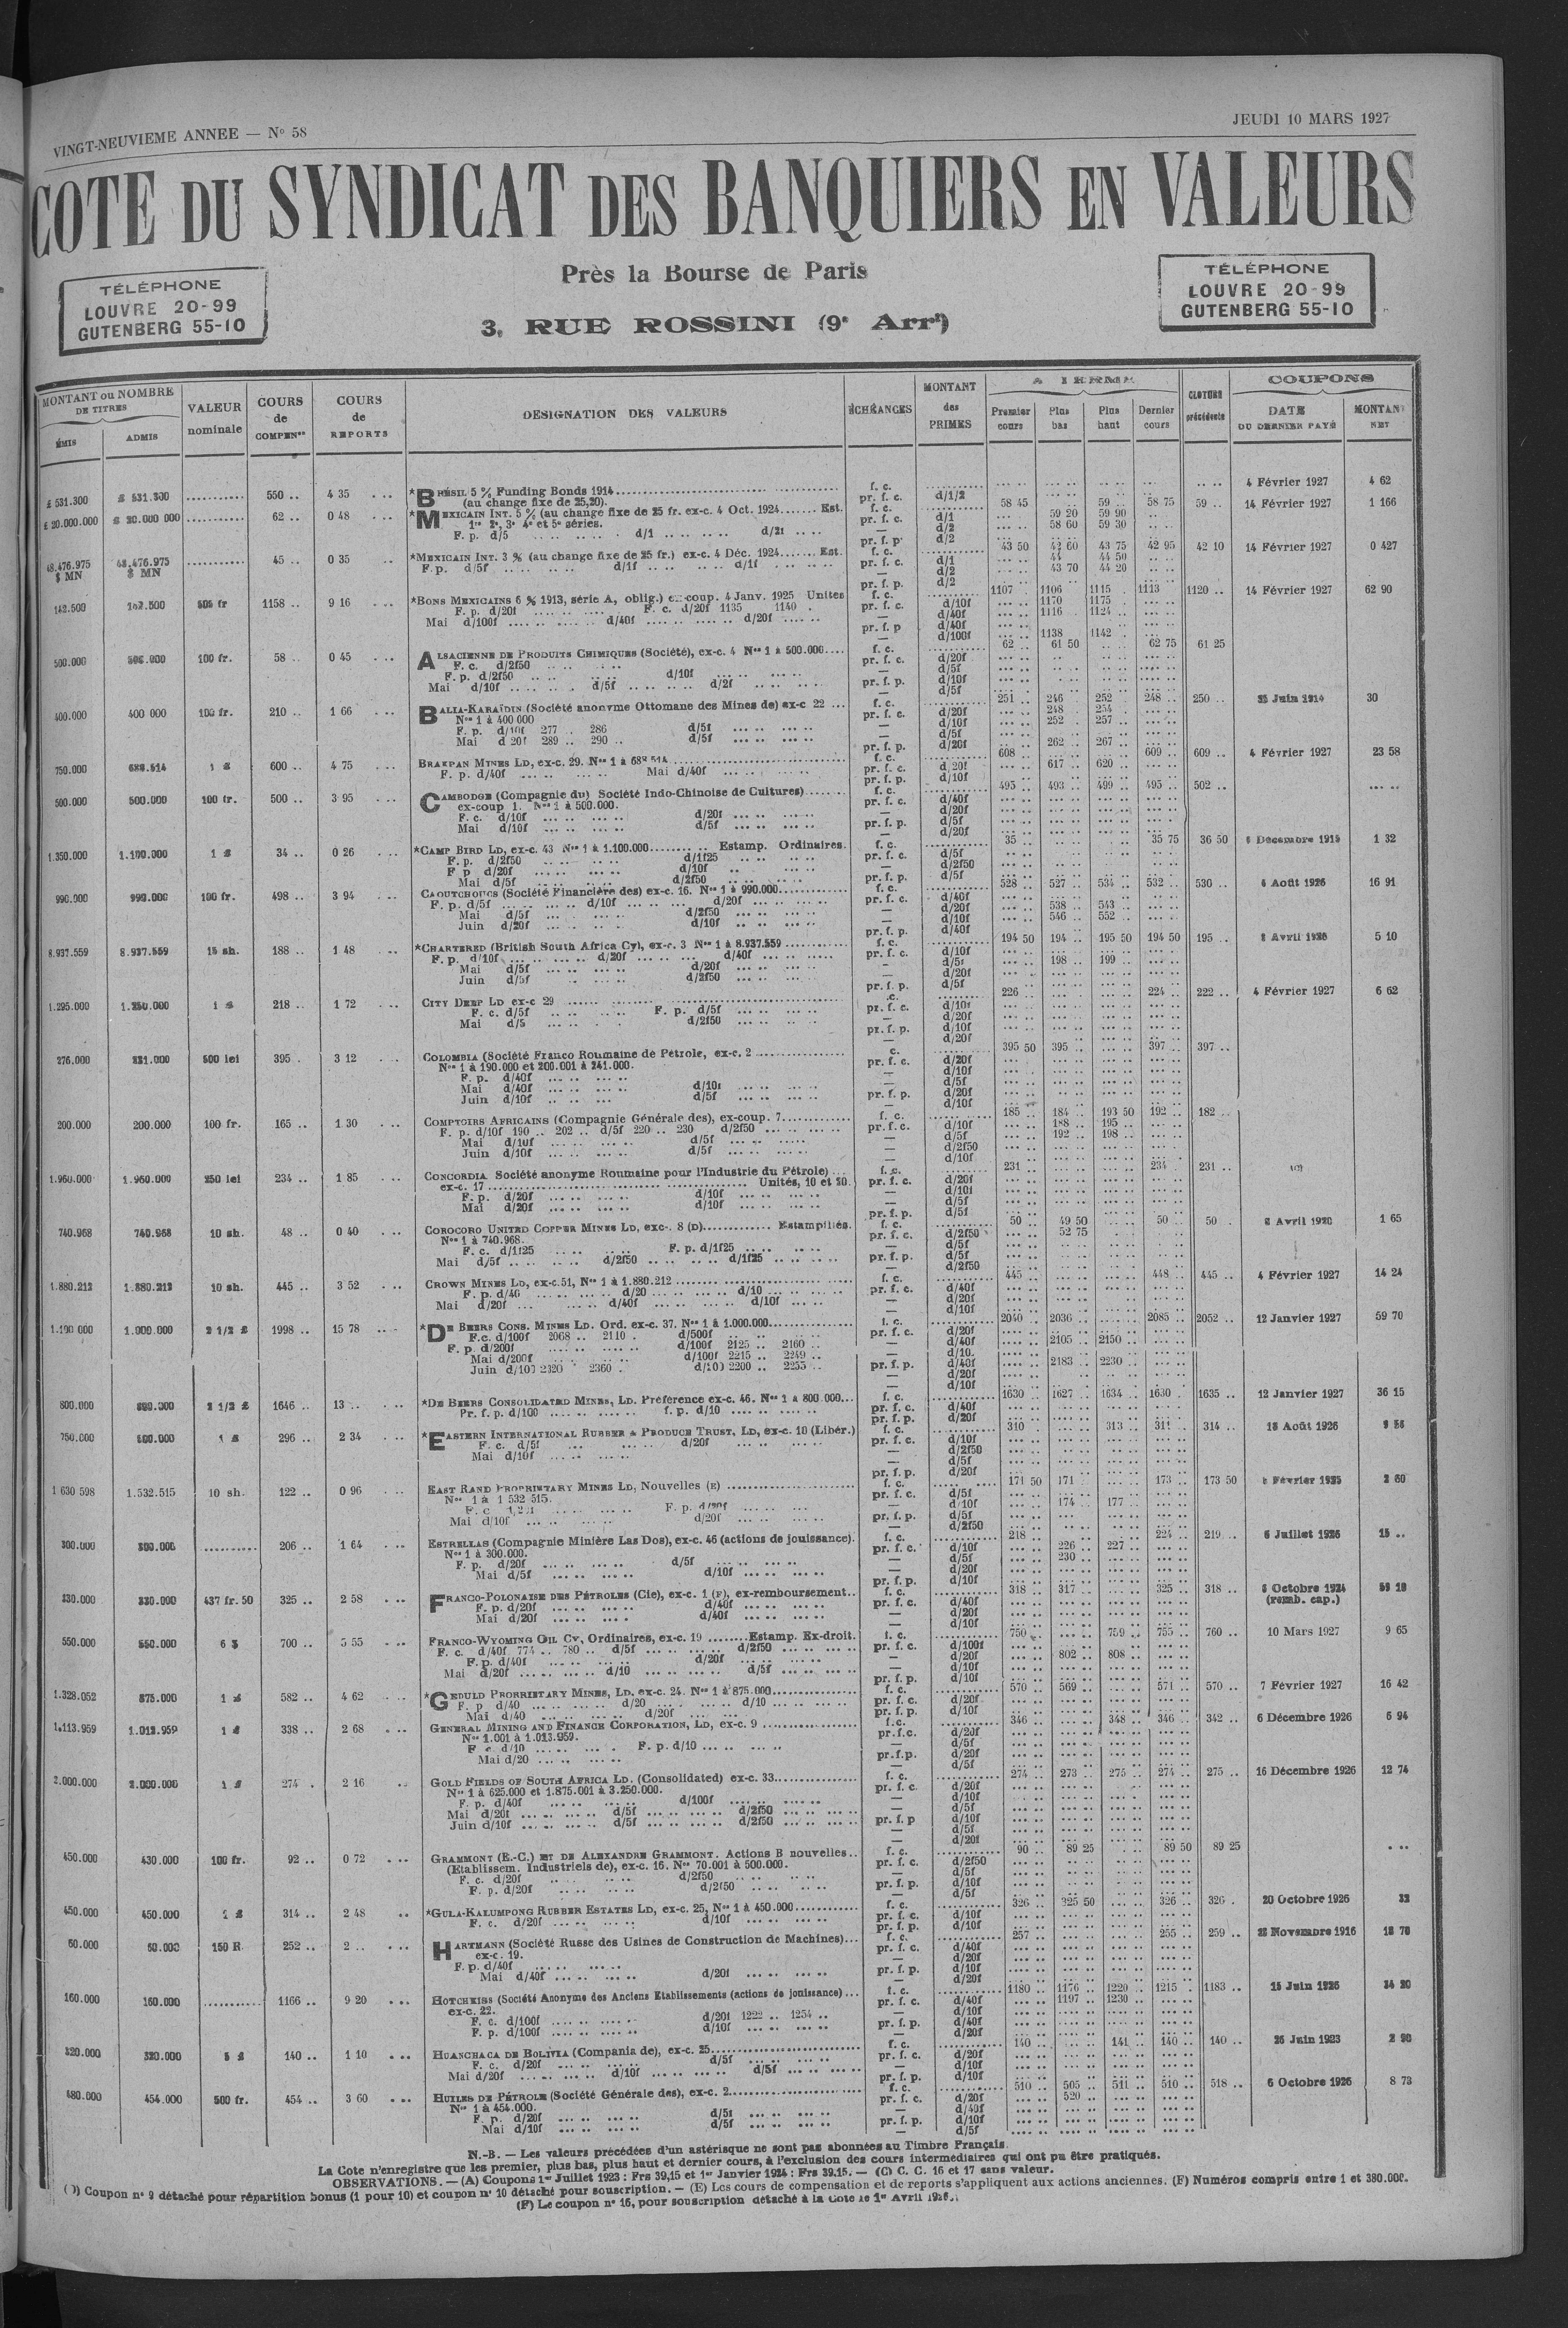 VINGT-NEUVIEME ANNEE — N° 58
JEUDI 10 MARS 1927
COTE DU SYNDICAT DES BANQUIERS EN VALEURS
Près la Bourse de Paris
3, RUE ROSSINI (9e Arrt)
TÉLÉPHONE
LOUVRE 20-99
GUTENBERG 55-10
TÉLÉPHONE
LOUVRE 20-99
GUTENBERG 55-10
MONTANT ou NOMBRE DE TITRES
ÉMIS ADMIS
VALEUR nominale
COURS de COMPENon
COURS de REPORTS
DESIGNATION DES VALEURS
ÉCHÉANCES
MONTANT des PRIMES
Premier cours Plus bas Plus haut Dernier cours
CLOTURE précédente
COUPONS
DATE DU DERNIER PAYÉ
MONTANT NET
£ 531.300 £ 531.300 ........... 550 .. 4 35 *BRÉSIL 5 % Funding Bonds 1914 f. c. 4 Février 1927 4 62
(au change fixe de 25,20). pr. f. c. d/1/2
£ 20.000.000 £ 20.000 000 ........... 62 .. 0 48 *MEXICAIN INT. 5 % (au change fixe de 25 fr. ex-c. 4 Oct. 1924....... Est. f. c. 58 45 59 .. 58 75 59 .. 14 Février 1927 1 166
1re 2e, 3e 4e et 5e séries. pr. f. c. d/1 59 20 59 90
F. p. d/5 d/1 d/2f — d/2 58 60 59 30
pr. f. p. d/2
48.476.975 $ MN 48.476.975 $ MN ........... 45 .. 0 35 *MEXICAIN INT. 3 % (au change fixe de 25 fr.) ex-c. 4 Déc. 1924....... Est. f. c. 43 50 42 60 43 75 42 95 42 10 14 Février 1927 0 427
F. p. d/5f d/1f d/1f pr. f. c. d/1 44 44 50
— d/2 43 70 44 20
pr. f. p. d/2
142.500 142.500 505 fr 1158 .. 9 16 *BONS MEXICAINS 6 % 1913, série A, oblig.) ex-coup. 4 Janv. 1925 Unites f. c. 1107 1106 1115 1113 1120 .. 14 Février 1927 62 90
F. p. d/20f F. c. d/20f 1135 1140 pr. f. c. d/10f 1170 1175
Mai d/100f d/40f d/20f — d/40f 1116 1124
pr. f. p d/40f
— d/100f 1138 1142
500.000 500.000 100 fr. 58 .. 0 45 ALSACIENNE DE PRODUITS CHIMIQUES (Société), ex-c. 4 Nos 1 à 500.000.... f. c. 62 .. 61 50 62 75 61 25
F. c. d/2f50 pr. f. c. d/20f
F. p. d/2f50 d/10f — d/5f
Mai d/10f d/5f d/2f pr. f. p. d/10f
— d/5f
400.000 400 000 100 fr. 210 .. 1 66 BALIA-KARAÏDIN (Société anonyme Ottomane des Mines de) ex-c 22 ... f. c. 251 246 252 248 .. 250 .. 25 Juin 1914 30
Nos 1 à 400 000 pr. f. c. d/20f 248 254
F. p. d/10f 277 . 286 d/5f — d/10f 252 257
Mai d 20f 289 .. 290 .. d/5f — d/5f
pr. f. p. d/20f 262 .. 267 ..
750.000 688.514 1 £ 600 .. 4 75 BRAKPAN MINES LD, ex-c. 29. Nos 1 à 688 514 f. c. 608 609 .. 609 .. 4 Février 1927 23 58
F. p. d/40f Mai d/40f pr. f. c. d 20f 617 .. 620 ..
pr. f. p. d/10f
500.000 500.000 100 fr. 500 .. 3 95 CAMBODGE (Compagnie du) Société Indo-Chinoise de Cultures) f. c. 495 .. 493 .. 499 .. 495 .. 502 ..
ex-coup 1. Nos 1 à 500.000. pr. f. c. d/40f
F. c. d/10f d/20f — d/20f
Mai d/10f d/5f pr. f. p. d/5f
— d/20f
1.350.000 1.100.000 1 £ 34 .. 0 26 *CAMP BIRD LD, ex-c. 43 Nos 1 à 1.100.000 Estamp. Ordinaires. f. c. 35 .. 35 75 36 50 1 32
F. p. d/2f50 d/1f25 pr. f. c. d/5f
F p d/20f d/10f — d/2f50
Mai d/5f d/2f50 pr. f. p. d/5f
990.000 990.000 100 fr. 498 .. 3 94 CAOUTCHOUCS (Société Financière des) ex-c. 16. Nos 1 à 990.000 f. c. 528 .. 527 .. 534 .. 532 .. 530 .. 4 Août 1926 16 91
F. p. d/5f d/10f d/20f pr. f. c. d/40f
Mai d/5f d/2f50 — d/20f 538 .. 543 ..
Juin d/20f d/10f — d/10f 546 .. 552 ..
pr. f. p. d/40f
8.937.559 8.937.559 15 sh. 188 .. 1 48 *CHARTERED (British South Africa Cy), ex-c. 3 Nos 1 à 8.937.559 f. c. 194 50 194 .. 195 50 194 50 195 .. 5 10
F. p. d/10f d/20f d/40f pr. f. c. d/10f
Mai d/5f d/20f — d/5f 198 .. 199 ..
Juin d/5f d/2f50 — d/20f
pr. f. p. d/5f
1.295.000 1.250.000 1 £ 218 .. 1 72 CITY DEEP LD ex-c 29 226 .. 224 .. 222 .. 4 Février 1927 6 62
F. c. d/5f F. p. d/5f pr. f. c. d/10f
Mai d/5 d/2f50 — d/20f
pr. f. p. d/10f
— d/20f
276.000 231.000 500 lei 395 . 3 12 COLOMBIA (Société Franco Roumaine de Pétrole, ex-c. 2 395 50 395 .. 397 .. 397 ..
Nos 1 à 190.000 et 200.001 à 241.000. pr. f. c. d/20f
F. p. d/40f — d/10f
Mai d/40f d/10f — d/5f
Juin d/10f d/5f pr. f. p. d/20f
— d/10f
200.000 200.000 100 fr. 165 .. 1 30 COMPTOIRS AFRICAINS (Compagnie Générale des), ex-coup. 7 f. c. 185 .. 184 .. 193 50 192 .. 182 ..
F. p. d/10f 190 .. 202 .. d/5f 220 .. 230 d/2f50 pr. f. c. d/10f 188 .. 195 ..
Mai d/10f d/5f — d/5f 192 .. 198 ..
Juin d/10f d/5f — d/2f50
— d/10f
1.960.000 1.960.000 250 lei 234 .. 1 85 CONCORDIA Société anonyme Roumaine pour l'Industrie du Pétrole) f. c. 231 .. 234 231 .. (C)
ex-c. 17 Unités, 10 et 20. pr. f. c. d/20f
F. p. d/20f d/10f — d/10f
Mai d/20f d/10f — d/5f
pr. f. p. d/5f
740.968 740.968 10 sh. 48 .. 0 40 COROCORO UNITED COPPER MINES LD, ex-c. 8 (D) Estampillés. f. c. 50 .. 49 50 50 .. 50 . 8 Avril 1920 1 65
Nos 1 à 740.968. pr. f. c. d/2f50 52 75
F. c. d/1f25 F. p. d/1f25 — d/5f
Mai d/5f d/2f50 d/1f25 pr. f. p. d/5f
— d/2f50
1.880.212 1.880.212 10 sh. 445 .. 3 52 CROWN MINES LD, ex-c.51, Nos 1 à 1.880.212 f. c. 445 .. 448 .. 445 .. 4 Février 1927 14 24
F. p. d/40 d/20 d/10 pr. f. c. d/40f
Mai d/20f d/40f d/10f — d/20f
— d/10f
1.100 000 1.000.000 2 1/2 £ 1998 .. 15 78 *DE BEERS CONS. MINES LD. Ord. ex-c. 37. Nos 1 à 1.000.000 f. c. 2040 .. 2036 .. 2085 .. 2052 .. 12 Janvier 1927 59 70
F.c. d/100f 2068 .. 2110 . d/500f pr. f. c. d/20f
F. p. d/200f d/100f 2125 .. 2160 .. — d/40f 2105 .. 2150 ..
Mai d/200f d/100f 2215 .. 2249 .. — d/10.
Juin d/100 2320 2360 . d/100 2200 .. 2255 .. pr. f. p. d/40f 2183 .. 2230 ..
— d/20f
— d/10f
800.000 800.000 2 1/2 £ 1646 .. 13 .. *DE BEERS CONSOLIDATED MINES, LD. Préférence ex-c. 46. Nos 1 à 800.000... f. c. 1630 1627 1634 .. 1630 1635 .. 12 Janvier 1927 36 15
Pr. f. p. d/100 f. p. d/10 pr. f. c. d/40f
pr. f. p. d/20f
750.000 600.000 1 £ 296 .. 2 34 *EASTERN INTERNATIONAL RUBBER & PRODUCE TRUST, LD, ex-c. 10 (Libér.) f. c. 310 313 .. 311 .. 314 .. 18 Août 1926
F. c. d/5f d/20f pr. f. c. d/10f
Mai d/10f — d/2f50
— d/5f
pr. f. p. d/20f
1 630 598 1.532.515 10 sh. 122 .. 0 96 EAST RAND PROPRIETARY MINES LD, Nouvelles (E) f. c. 171 50 171 173 .. 173 50
Nos 1 à 1 532 515. pr. f. c. d/5f
F. p. d/20f — d/10f 174 .. 177 ..
Mai d/10f d/20f pr. f. p. d/5f
— d/2f50
300.000 300.000 ........... 206 .. 1 64 ESTRELLAS (Compagnie Minière Las Dos), ex-c. 46 (actions de jouissance). f. c. 218 .. 224 .. 219 .. 6 Juillet 1926 15 ..
Nos 1 à 300.000. pr. f. c. d/10f 226 .. 227 ..
F. p. d/20f d/5f — d/5f 230 ..
Mai d/5f d/10f — d/20f
pr. f. p. d/10f
330.000 330.000 437 fr. 50 325 .. 2 58 FRANCO-POLONAISE DES PÉTROLES (Cie), ex-c. 1 (F), ex-remboursement.. f. c. 318 .. 317 .. 325 .. 318 .. Octobre 1924
F. p. d/20f d/40f pr. f. c. d/40f (remb. cap.)
Mai d/20f d/40f — d/20f
— d/10f
550.000 550.000 6 $ 700 .. 5 55 FRANCO-WYOMING OIL Cy, Ordinaires, ex-c. 19 ........Estamp. Ex-droit. f. c. 750 759 .. 755 .. 760 .. 10 Mars 1927 9 65
F. c. d/40f 774 .. 780 .. d/5f d/2f50 pr. f. c. d/100f
F. p. d/40f d/20f — d/20f 802 .. 808 ..
Mai d/20f d/10 d/5f — d/10f
pr. f. p. d/10f
1.328.052 875.000 1 £ 582 .. 4 62 *GEDULD PRORRIETARY MINES, LD, ex-c. 24. Nos 1 à 875.000 f. c. 570 .. 569 .. 571 .. 570 .. 7 Février 1927 16 42
F. p d/40 d/20 d/10 pr. f. c. d/20f
Mai d/40 d/20f pr. f. p. d/10f
1.113.959 1.013.959 1 £ 338 .. 2 68 GENERAL MINING AND FINANCE CORPORATION, LD, ex-c. 9 f. c. 346 .. 348 .. 346 .. 342 .. 6 Décembre 1926 6 94
Nos 1.001 à 1.013.959. pr.f.c. d/20f
F. c. d/10 F. p. d/10 — d/5f
Mai d/20 pr.f.p. d/20f
— d/5f
2.000.000 2.000.000 1 £ 274 . 2 16 GOLD FIELDS OF SOUTH AFRICA LD. (Consolidated) ex-c. 33 f. c. 274 .. 273 .. 275 .. 274 .. 275 .. 16 Décembre 1926 12 74
Nos 1 à 625.000 et 1.875.001 à 3.250.000. pr. f. c. d/20f
F. p. d/40f d/100f — d/10f
Mai d/20f d/5f d/2f50 — d/5f
Juin d/10f d/5f d/2f50 pr. f. p d/10f
— d/5f
— d/20f
450.000 430.000 100 fr. 92 .. 0 72 GRAMMONT (E.-C.) ET DE ALEXANDRE GRAMMONT. Actions B nouvelles.. f. c. 90 .. 89 25 89 50 89 25
(Etablissem. Industriels de), ex-c. 16. Nos 70.001 à 500.000. pr. f. c. d/2f50
F. c. d/20f d/2f50 — d/5f
F. p. d/20f d/2f50 pr. f. p. d/10f
— d/5f
450.000 450.000 1 £ 314 .. 2 48 *GULA-KALUMPONG RUBBER ESTATES LD, ex-c. 25, Nos 1 à 450.000 f. c. 326 .. 325 50 326 .. 326 . 20 Octobre 1926 32
F. c. d/20f d/10f pr. f. c. d/10f
pr. f. p. d/10f
60.000 60.000 150 R. 252 .. 2 .. HARTMANN (Société Russe des Usines de Construction de Machines)... f. c. 257 .. 255 .. 259 .. 28 Novembre 1916 18 70
ex-c. 19. pr. f. c. d/40f
F. p. d/40f — d/20f
Mai d/40f d/20f pr. f. p. d/10f
— d/20f
160.000 160.000 ........... 1166 .. 9 20 HOTCHKISS (Société Anonyme des Anciens Etablissements (actions de jouissance) ... f. c. 1180 .. 1176 .. 1220 .. 1215 .. 1183 .. 15 Juin 1926 34 20
ex-c. 22. pr. f. c. d/40f 1197 .. 1230 ..
F. c. d/100f d/20f 1222 .. 1254 .. — d/10f
F. p. d/100f d/10f pr. f. p. d/40f
— d/20f
320.000 320.000 5 £ 140 .. 1 10 HUANCHACA DE BOLIVIA (Compania de), ex-c. 25 f. c. 140 .. 141 .. 140 .. 140 .. 26 Juin 1923 2 90
F. c. d/20f d/5f pr. f. c. d/20f
Mai d/20f d/10f d/5f — d/10f
pr. f. p. d/10f
480.000 454.000 500 fr. 454 .. 3 60 HUILES DE PÉTROLE (Société Générale des), ex-c. 2 f. c. 510 .. 505 .. 511 .. 510 .. 518 .. 6 Octobre 1926 8 73
Nos 1 à 454.000. pr. f. c. d/20f 520 ..
F. p. d/20f d/5f — d/40f
Mai d/10f d/5f pr. f. p. d/10f
— d/5f
N.-B. — Les valeurs précédées d'un astérisque ne sont pas abonnées au Timbre Français.
La Cote n'enregistre que les premier, plus bas, plus haut et dernier cours, à l'exclusion des cours intermédiaires qui ont pu être pratiqués.
OBSERVATIONS. — (A) Coupons 1er Juillet 1923 : Frs 39,15 et 1er Janvier 1924 : Frs 39.15. — (C) C. C. 16 et 17 sans valeur.
(D) Coupon n° 9 détaché pour répartition bonus (1 pour 10) et coupon n° 10 détaché pour souscription. — (E) Les cours de compensation et de reports s'appliquent aux actions anciennes. (F) Numéros compris entre 1 et 380.000.
(F) Le coupon n° 16, pour souscription détaché à la Cote le 1er Avril 1926.